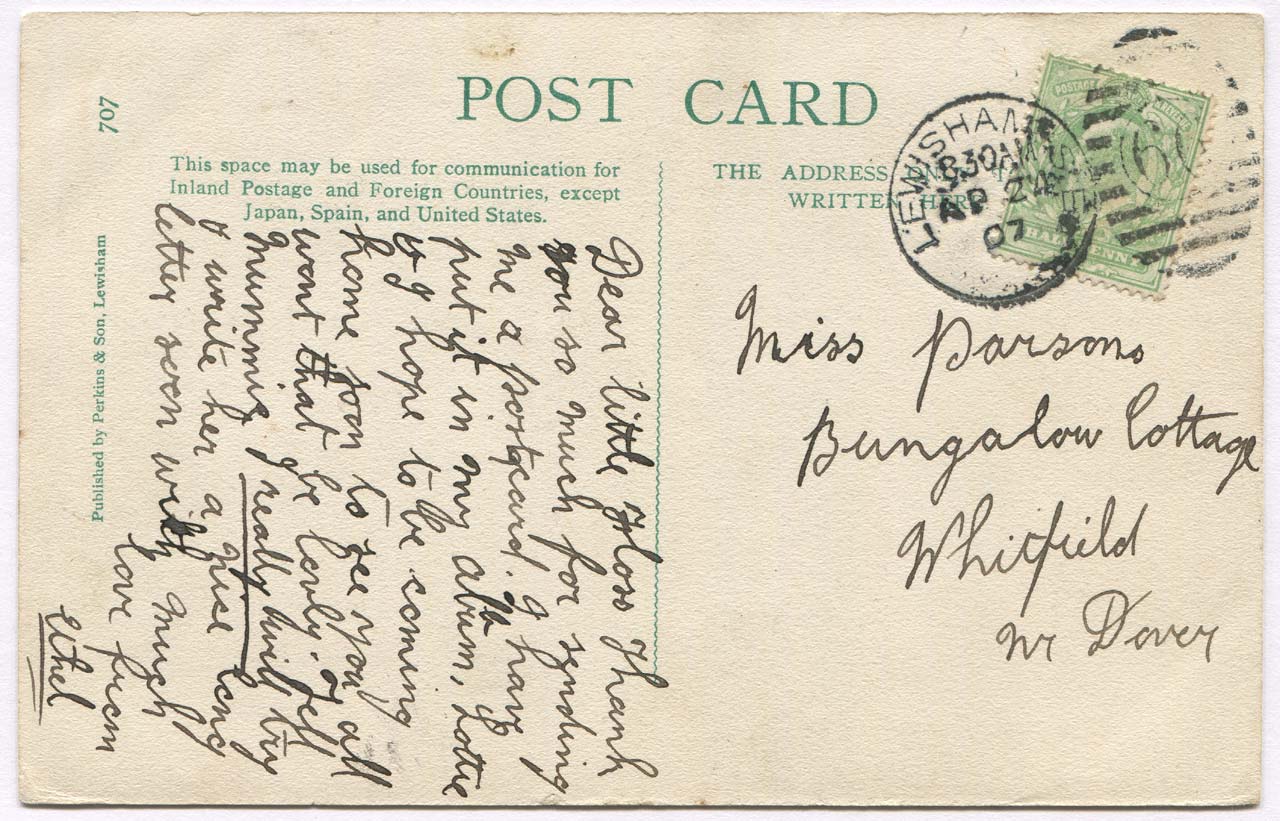 POST CARD
707
This space may be used for communication for
Inland Postage and Foreign Countries, except
Japan, Spain, and United States.
THE ADDRESS
WRITTEN HERE
Published by Perkins & Son, Lewisham
LEWISHAM S.E
8.30AM
AP 24
07
POSTAGE
HALFPENNY
Dear little Floss Thank
you so much for sending
me a postcard. I have
put it in my album, Lottie
& I hope to be coming
home soon to see you all
wont that be lovly. Tell
mummie I really will try
& write her a nise long
letter soon with much
love from
Ethel
Miss Parsons
Bungalow Cottage
Whitfield
nr Dover